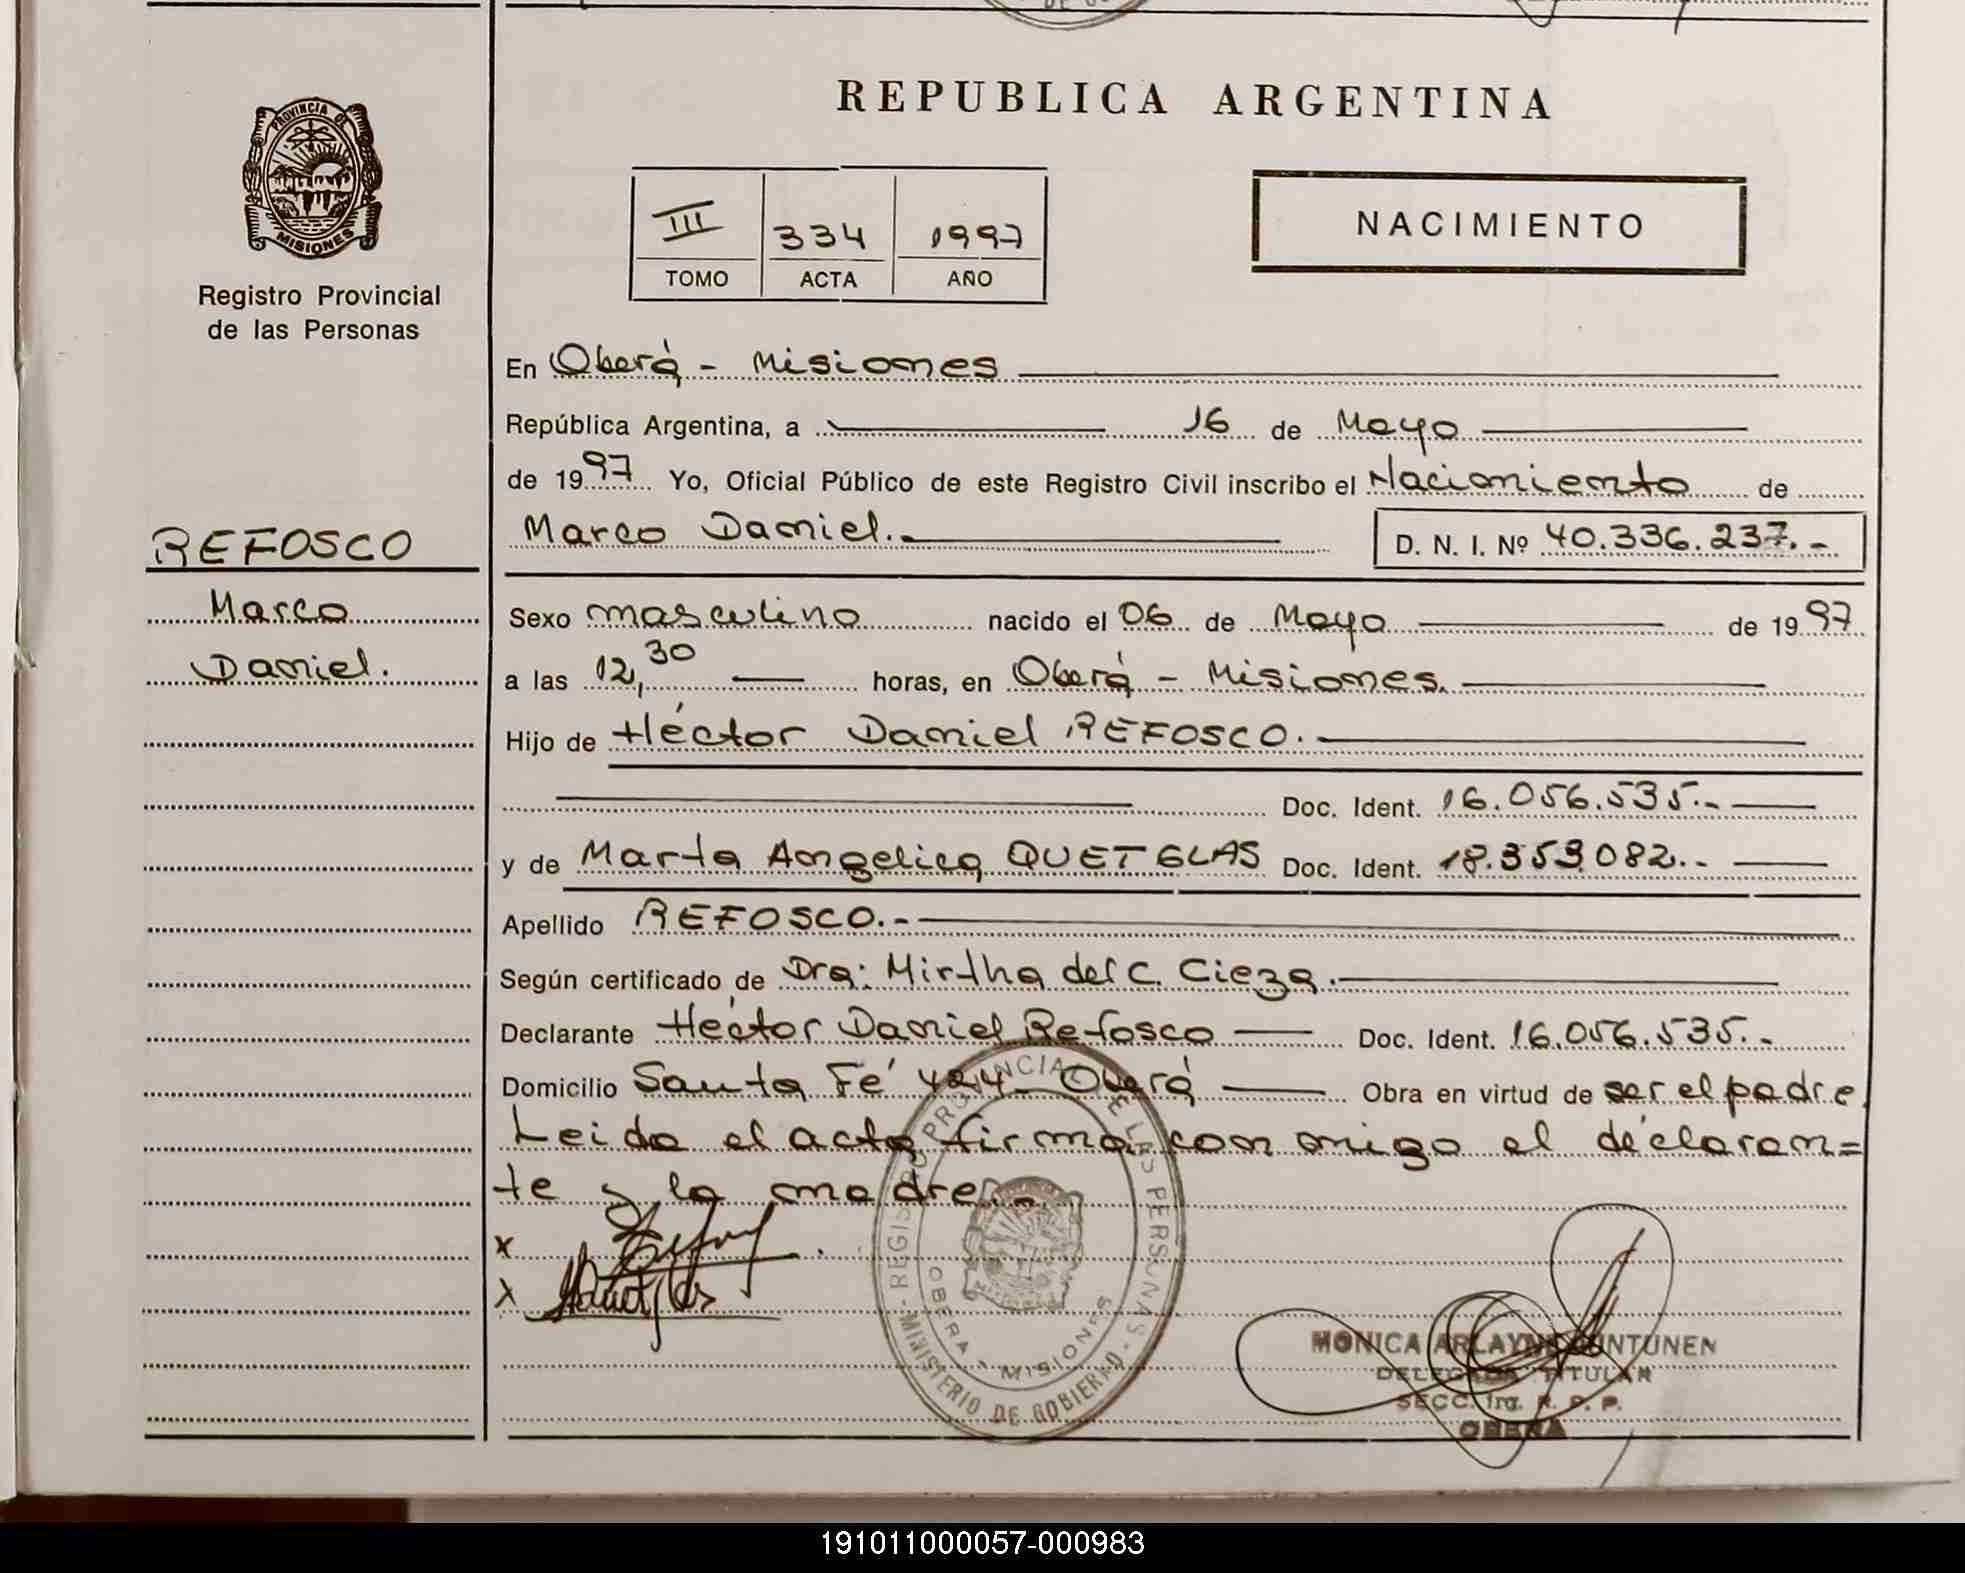 REPUBLICA ARGENTINA
PROVINCIA DE
MISIONES
Registro Provincial
de las Personas
III 334 1997
TOMO ACTA AÑO
NACIMIENTO
En Oberá - Misiones
República Argentina, a 16 de Mayo
de 1997 Yo, Oficial Público de este Registro Civil inscribo el Nacimiento de
REFOSCO
Marco Daniel.-
D. N. I. Nº 40.336.237.-
Marco
Daniel.
Sexo masculino nacido el 06 de Mayo de 1997
a las 12,30 horas, en Oberá - Misiones.
Hijo de Héctor Daniel REFOSCO.
Doc. Ident. 16.056.535.-
y de Marta Angelica QUETGLAS Doc. Ident. 18.353.082.-
Apellido REFOSCO.-
Según certificado de Dra: Mirtha del C. Cieza.
Declarante Héctor Daniel Refosco Doc. Ident. 16.056.535.-
Domicilio Santa Fé 424 Oberá Obra en virtud de ser el padre
Leida el acta firma con migo el declaran=
te y la madre.-
x
x
REGISTRO PROVINCIAL DE LAS PERSONAS
OBERA - MISIONES
MINISTERIO DE GOBIERNO
MONICA ARLAYNE PUNTUNEN
DELEGADA TITULAR
SECC. R. P. P.
OBERA
191011000057-000983